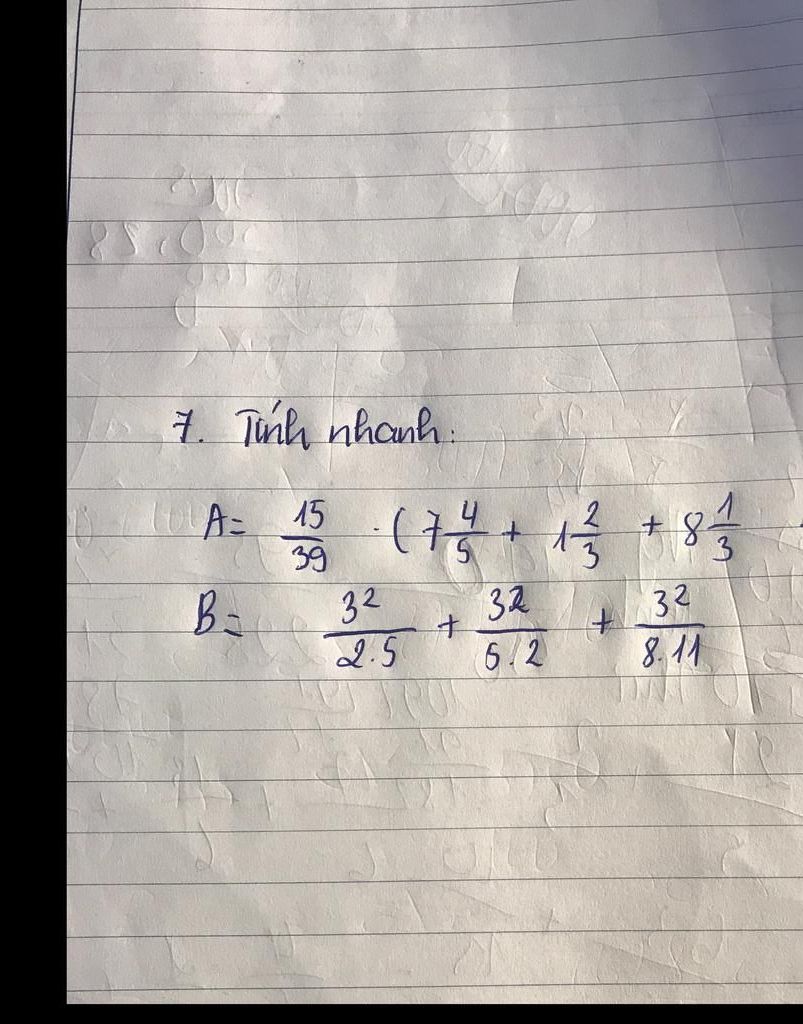 7. Tính nhanh:
A = 15/39 · ( 7 4/5 + 1 2/3 + 8 1/3
B = 3²/2.5 + 32/5.2 + 3²/8.11